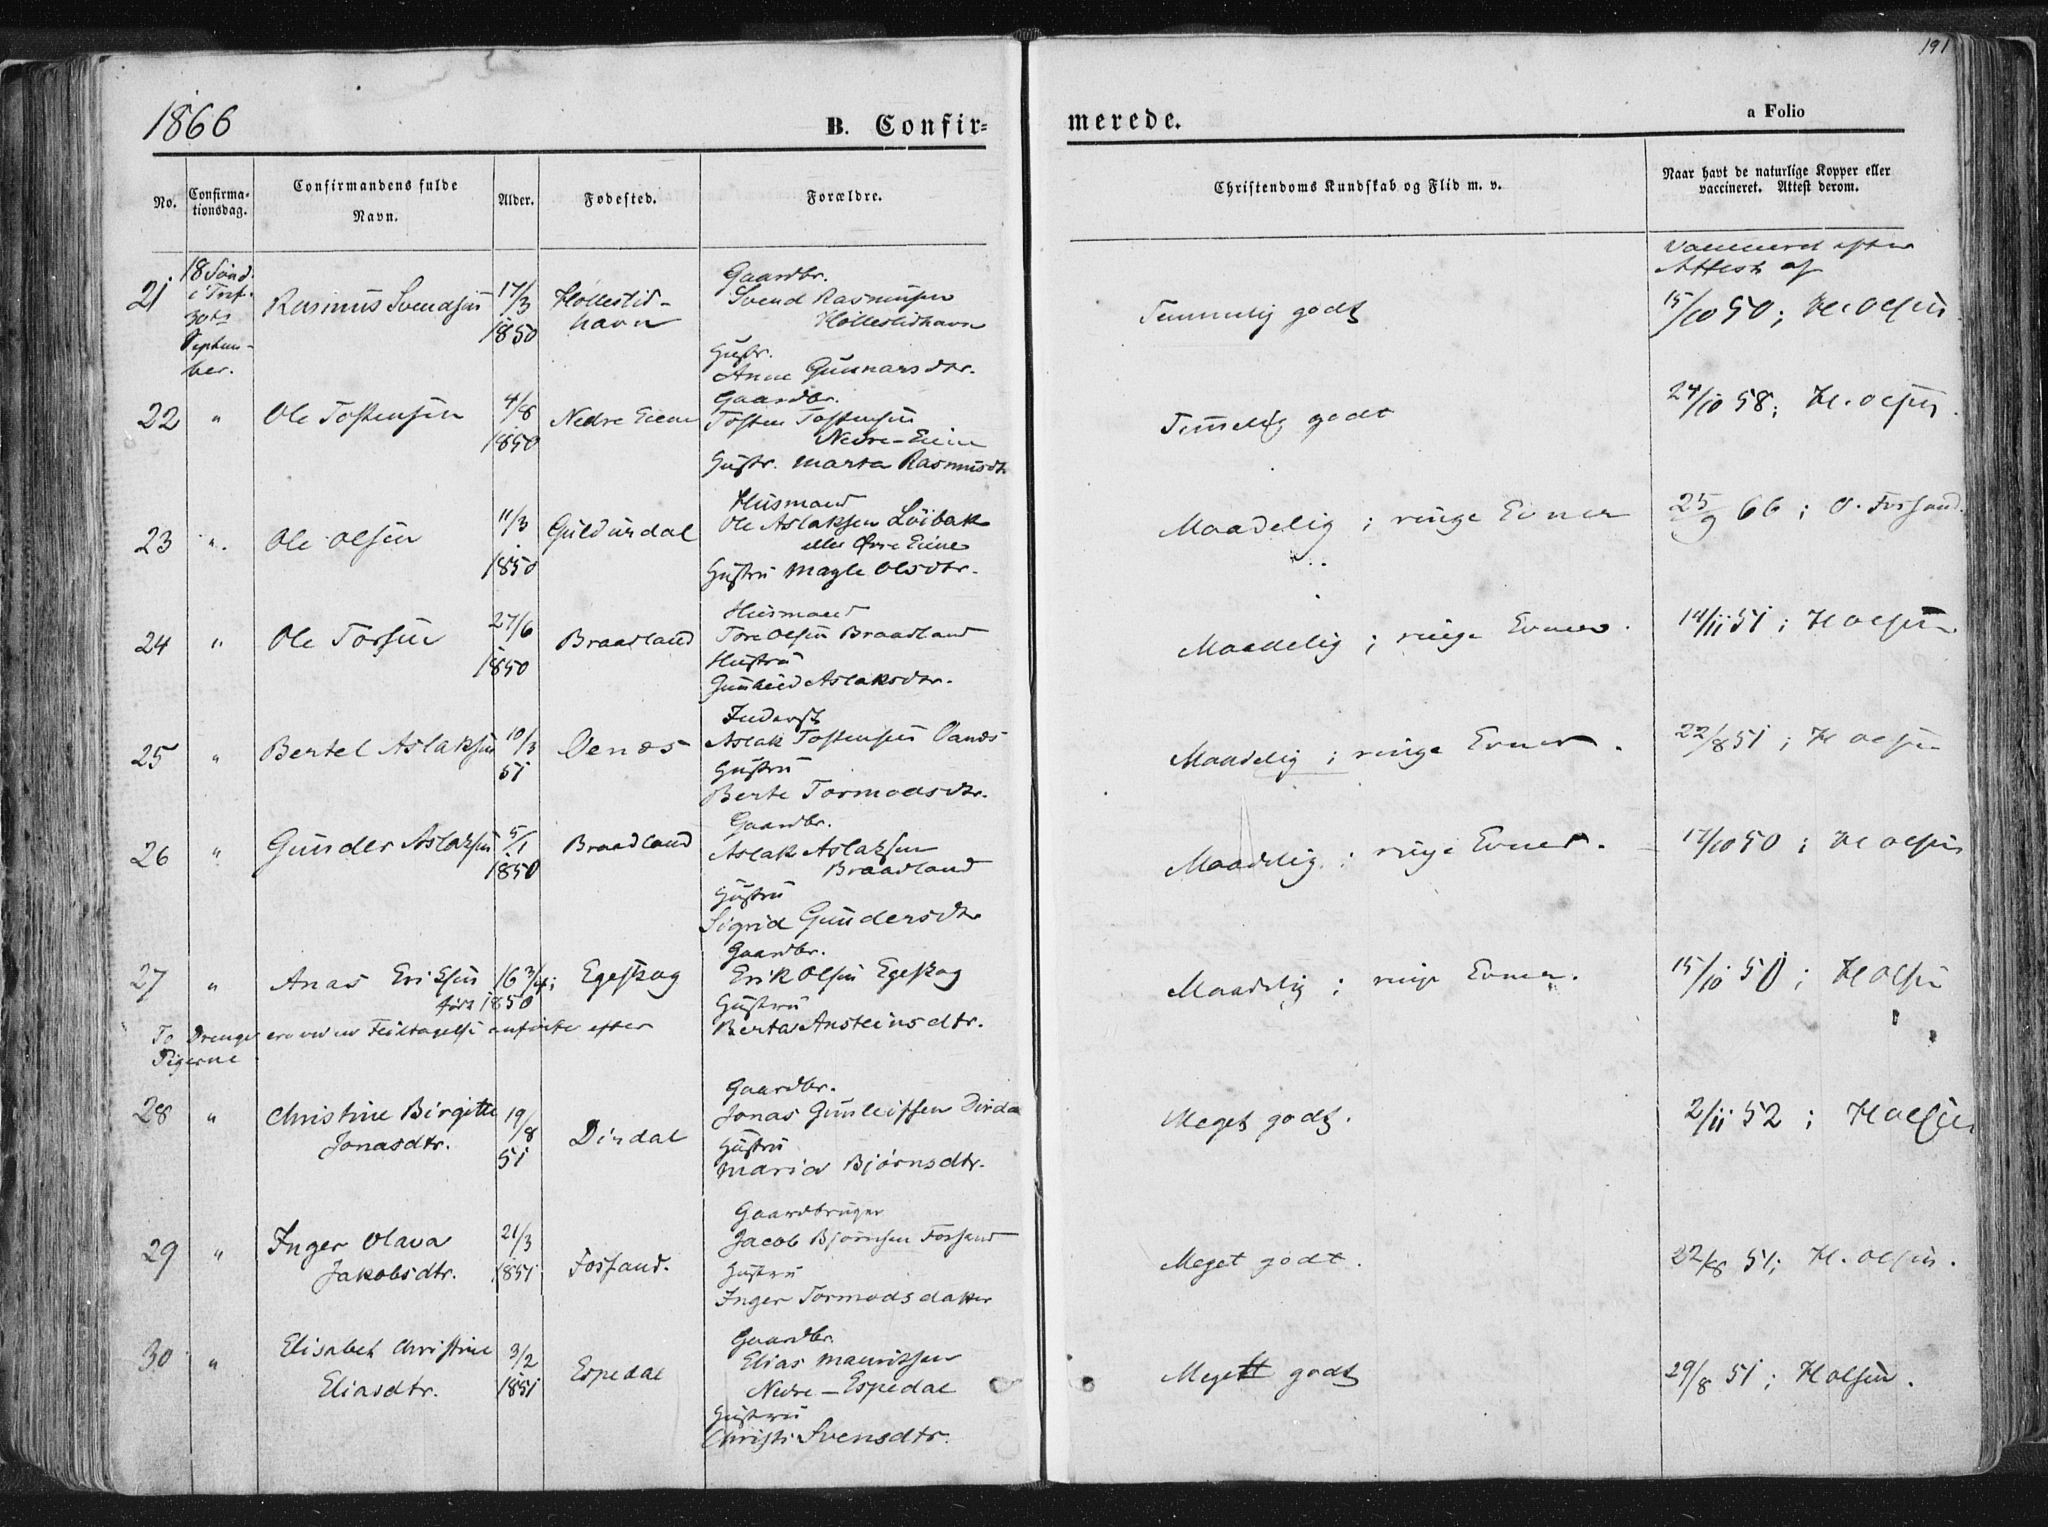 191
1866
B. Confir-
merede.
a Folio
No.
Confirma-
tionsdag.
Confirmandens fulde
Navn.
Alder.
Fødested.
Forældre.
Christendoms Kundskab og Flid m. v.
Naar havt de naturlige Kopper eller
vaccineret. Attest derom.
Vaccineret efter
Attest af
21
18 Sønd.
i Tref.
30te
Septem-
ber.
Rasmus Svendsen
17/3
1850
Hölleslid-
havn
Gaardbr.
Svend Rasmusen
Hölleslidhavn
Hustr.
Anne Gunnarsdtr.
Temmelig godt
15/10 50; H. Olsen
22 " Ole Tostensen
4/8
1850
Nedre Eiene
Gaardbr.
Tosten Tostensen
Nedre-Eiene
Hustr. Marta Rasmusdtr
Temelig godt
24/10 58; H. Olsen.
23 " Ole Olsen
11/3
1850
Guldurdal
Husmand
Ole Aslaksen Løibak
eller Øvre Eiene
Hustru Magle Olsdtr.
Maadelig; ringe Evner
25/9 66; O. Forsand.
24 " Ole Torsen
27/6
1850
Braadland
Husmand
Tore Olsen Braadland
Hustru
Gunhild Aslaksdtr.
Maadelig; ringe Evner.
14/11 51; H Olsen.
25 " Bertel Aslaksen
10/3
51
Oenes
Inderst
Aslak Tostensen Oanes
Hustru
Berte Tormodsdtr.
Maadelig; ringe Evner.
22/8 51; H Olsen
26 " Gunder Aslaksen
5/1
1850
Braadland
Gaardbr.
Aslak Aslaksen
Braadland
Hustru
Sigrid Gundersdtr
Maadelig; ringe Evner.
17/10 50; H Olsen
27 " Anas Eriksen
16 3/4;
før 1850
Egeskog
Gaardbr.
Erik Olsen Egeskog
Hustru
Berta Ansteinsdtr.
Maadelig; ringe Evner.
15/10 50; H Olsen
To Drenge ere ved en Feiltagelse anførte efter
Pigerne
28 " Christine Birgitte
Jonasdtr.
19/8
51
Dirdal
Gaardbr.
Jonas Gunleifsen Dirdal
Hustru
Maria Bjørnsdtr.
Meget godt.
2/11 52; H Olsen
29 " Inger Olava
Jakobsdtr.
21/3
1851
Forsand.
Gaardbruger
Jacob Bjørnsen Forsand
Hustru
Inger Tormodsdatter
Meget godt.
22/8 51; H. Olsen.
30 " Elisabet Christine
Eliasdtr.
3/2
1851
Espedal
Gaardbr.
Elias Mauritsen
Nedre-Espedal
Hustru
Christi Svensdtr.
Meget godt
29/8 51; H Olsen.